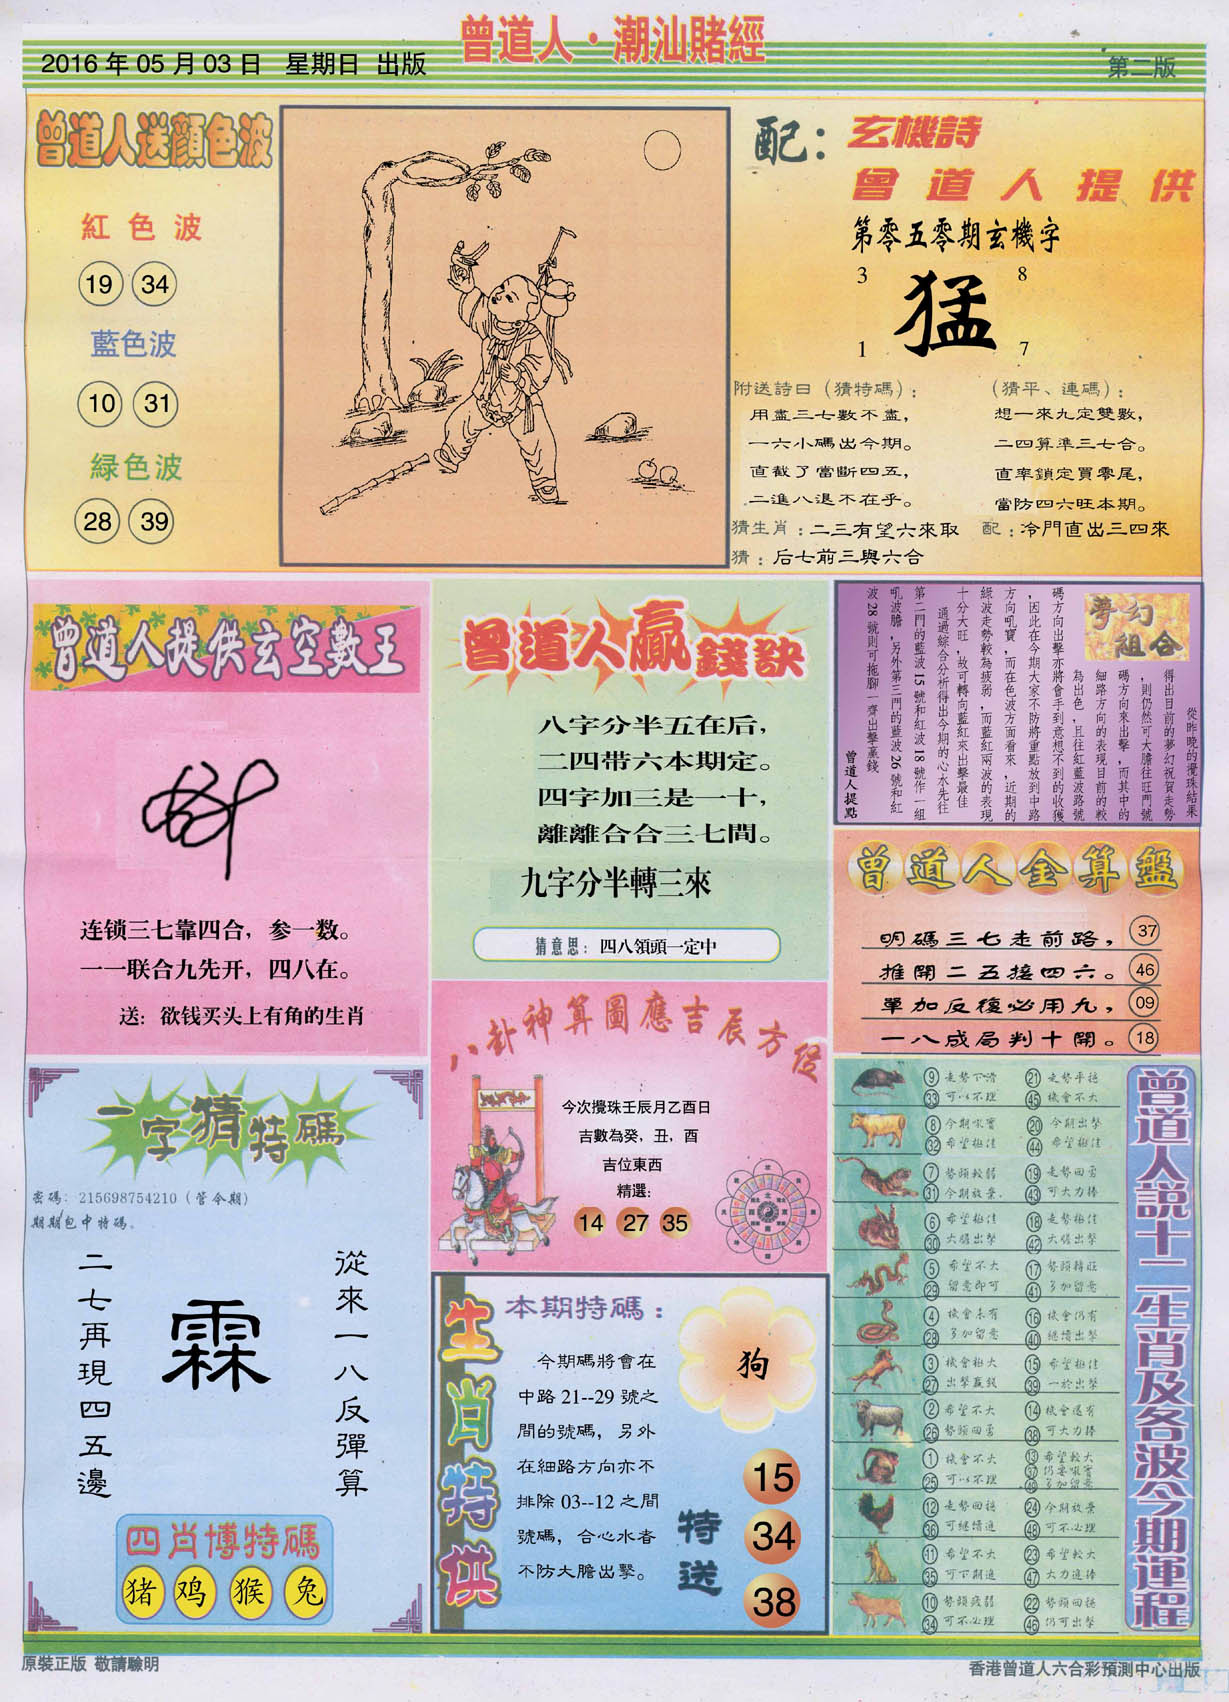 曾道人·潮汕賭經
2016 年 05 月 03 日　星期日　出版
第二版
曾道人送顏色波
紅色波
19 34
藍色波
10 31
緑色波
28 39
配：玄機詩
曾道人提供
第零五零期玄機字
3 8
猛
1 7
附送詩曰（猜特碼）：
用盡三七數不盡，
一六小碼出今期。
直截了當斷四五，
二進八退不在乎。
（猜平、連碼）：
想一來九定雙數，
二四算準三七合。
直率鎖定買零尾，
當防四六旺本期。
猜生肖：二三有望六來取　配：冷門直出三四來
猜：后七前三與六合
曾道人提供玄空數王
连锁三七靠四合，参一数。
一一联合九先开，四八在。
送：欲钱买头上有角的生肖
曾道人贏錢訣
八字分半五在后，
二四带六本期定。
四字加三是一十，
離離合合三七間。
九字分半轉三來
猜意思：四八領頭一定中
夢幻組合
從昨晚的攪珠結果
得出目前的夢幻祝賀走勢
，則仍然可大膽往旺門號
碼方向來出擊，而其中的
細路方向的表現目前的較
為出色，且往紅藍波路號
碼方向出擊亦將會手到意想不到的收獲
，因此在今期大家不防將重點放到中路
方向吼寶，而在色波方面看來，近期的
綠波走勢較為疲弱，而藍紅兩波的表現
十分大旺，故可轉向藍紅來出擊最佳
通過綜合分析得出今期的心水先往
第二門的藍波 15 號和紅波 18 號作一組
吼波膽，另外第三門的藍波 26 號和紅
波 28 號則可拖腳一齊出擊贏錢
曾道人提點
曾道人金算盤
明碼三七走前路， 37
推開二五接四六。 46
單加反復必用九， 09
一八成局判十開。 18
八卦神算圖應吉辰方位
今次攪珠壬辰月乙酉日
吉數為癸，丑，酉
吉位東西
精選:
14 27 35
一字猜特碼
密碼: 215698754210 (管今期)
期期包中特碼。
從來一八反彈算
霖
二七再現四五邊
四肖博特碼
猪 鸡 猴 兔
生肖特供
本期特碼：
今期碼將會在
中路 21--29 號之
間的號碼，另外
在細路方向亦不
排除 03--12 之間
號碼，合心水者
不防大膽出擊。
狗
特送
15
34
38
曾道人説十二生肖及各波今期運程
⑨ 走勢下滑 ㉑ 走勢平穩
㉝ 可以不理 ㊺ 機會不大
⑧ 今期吼實 ⑳ 今期出擊
㉜ 希望極佳 ㊹ 希望極佳
⑦ 勢頭較弱 ⑲ 走勢回勇
㉛ 今期放棄 ㊸ 可大力捧
⑥ 希望極佳 ⑱ 走勢極佳
㉚ 大膽出擊 ㊷ 大膽出擊
⑤ 希望不大 ⑰ 勢頭轉旺
㉙ 留意即可 ㊶ 多加留意
④ 機會未有 ⑯ 機會仍有
㉘ 多加留意 ㊵ 繼續出擊
③ 機會極大 ⑮ 希望極佳
㉗ 出擊贏錢 ㊴ 一於出擊
② 希望不大 ⑭ 機會還有
㉖ 勢頭回勇 ㊳ 可大力捧
① 機會不大 ⑬ 希望較大
㉕ 可以不理 ㊲ 仍要吼實
㊾ 多加留意
⑫ 走勢回穩 ㉔ 今期放棄
㊱ 可繼續追 ㊽ 可不必理
⑪ 希望不大 ㉓ 希望較大
㉟ 可下期追 ㊼ 大力追捧
⑩ 勢頭疲弱 ㉒ 勢頭回穩
㉞ 可不必理 ㊻ 仍可出擊
原裝正版 敬請驗明
香港曾道人六合彩預測中心出版